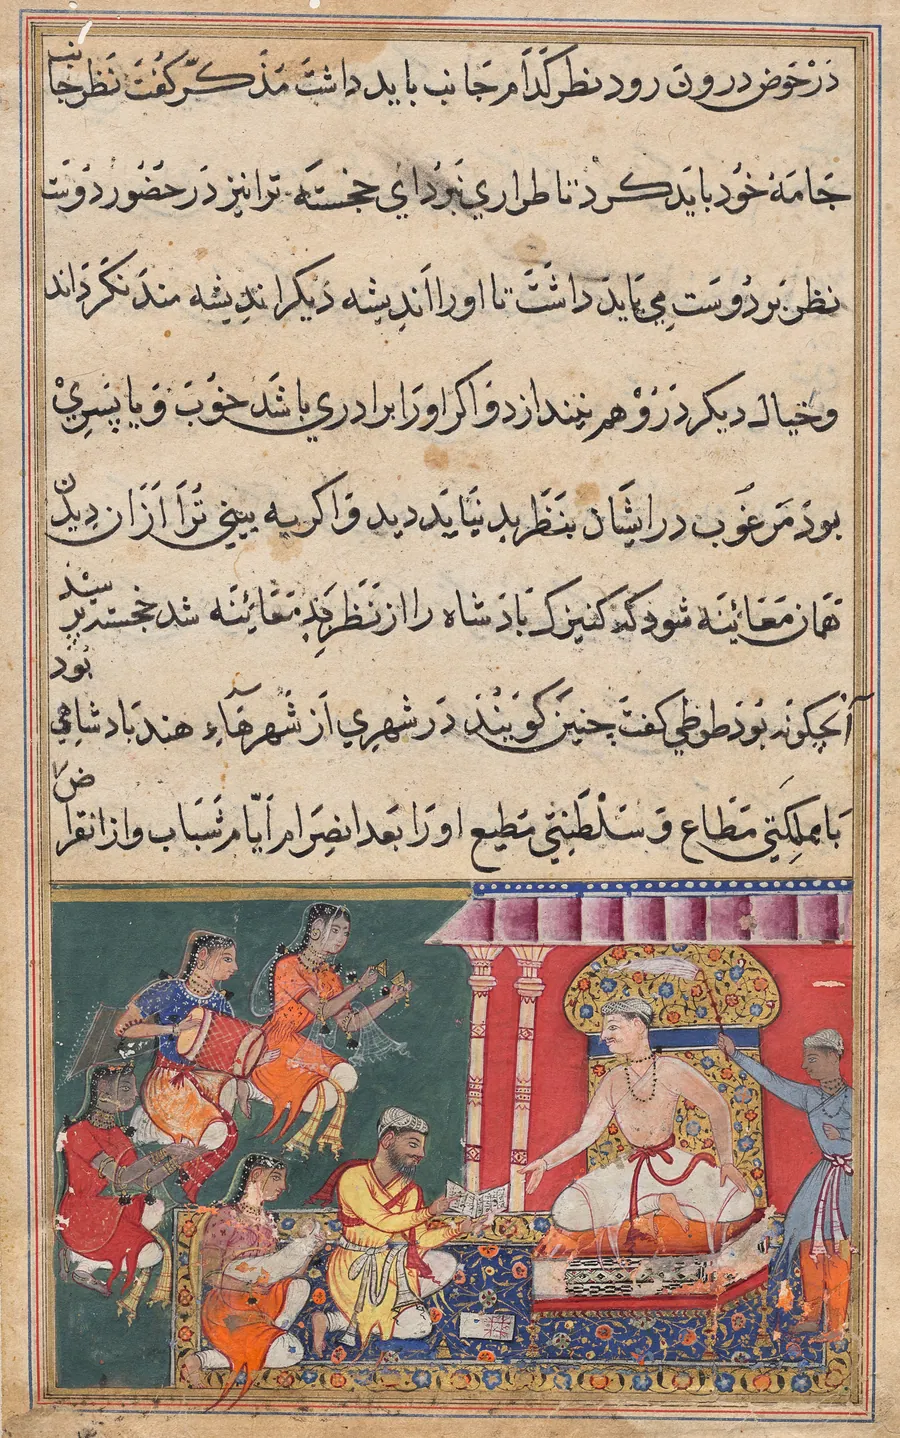 در حوض درون رود نظر کدام جانب باید داشت مذکر گفت نظر جانب
جامهٔ خود باید کرد تا طراری نبرد ای خجسته ترا نیز در حضور دوست
نظر بر دوست می باید داشت تا او را اندیشه دیکر اندیشه مند نکرداند
و خیال دیکر در وهم نیندازد و اکر او را برادری باشد خوب و یا پسری
بود مرغوب در ایشان بنظر بد نباید دید و اکر به بینی ترا از آن دیدن
همان معاینه شود که کنیزک بادشاه را از نظر بد معاینه شد خجسته پرسید
آن چکونه بود طوطی کفت چنین کویند در شهری از شهرهاء هند بادشاهی بود
با مملکتی مطاع و سلطنتی مطیع او را بعد انصرام ایام شباب و از انقراض